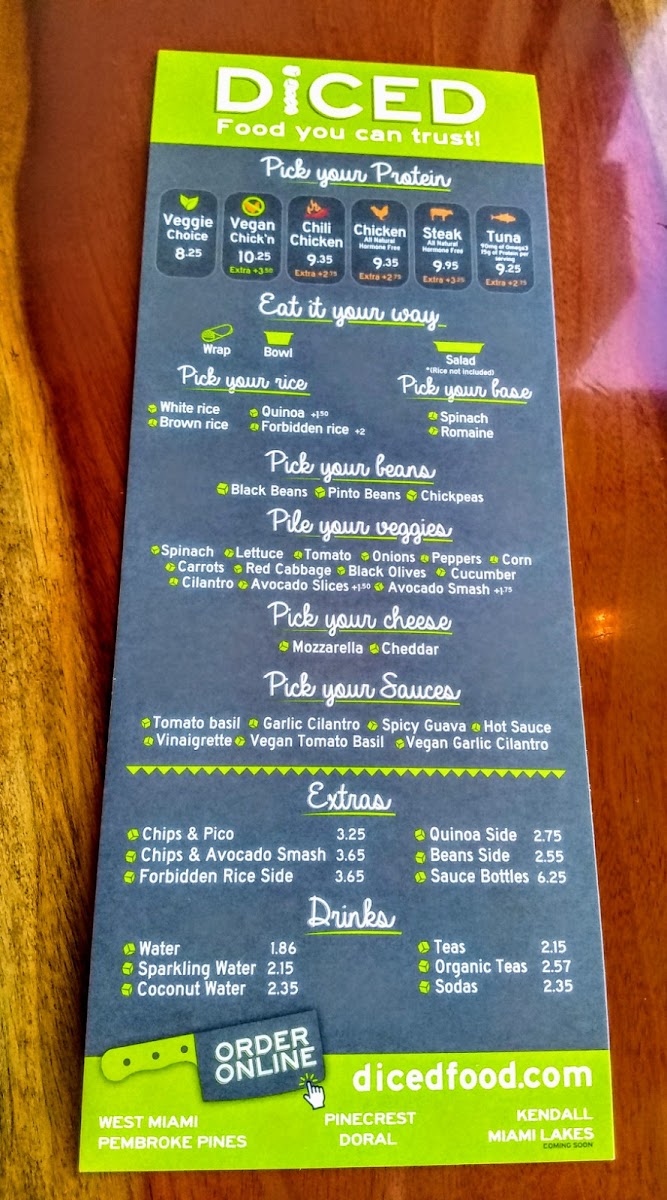 DiCED
Food you can trust!
Pick your Protein
Veggie Choice 8.25
Vegan Chick'n 10.25 Extra +3.50
Chili Chicken 9.35 Extra +2.75
Chicken All Natural Hormone Free 9.35 Extra +2.75
Steak All Natural Hormone Free 9.95 Extra +3.25
Tuna 90mg of Omega3 15g of Protein per serving 9.25 Extra +2.75
Eat it your way
Wrap Bowl Salad
*(Rice not included)
Pick your rice
White rice Quinoa +1.50
Brown rice Forbidden rice +2
Pick your base
Spinach
Romaine
Pick your beans
Black Beans Pinto Beans Chickpeas
Pile your veggies
Spinach Lettuce Tomato Onions Peppers Corn
Carrots Red Cabbage Black Olives Cucumber
Cilantro Avocado Slices +1.50 Avocado Smash +1.75
Pick your cheese
Mozzarella Cheddar
Pick your Sauces
Tomato basil Garlic Cilantro Spicy Guava Hot Sauce
Vinaigrette Vegan Tomato Basil Vegan Garlic Cilantro
Extras
Chips & Pico 3.25
Chips & Avocado Smash 3.65
Forbidden Rice Side 3.65
Quinoa Side 2.75
Beans Side 2.55
Sauce Bottles 6.25
Drinks
Water 1.86
Sparkling Water 2.15
Coconut Water 2.35
Teas 2.15
Organic Teas 2.57
Sodas 2.35
ORDER
ONLINE
dicedfood.com
WEST MIAMI
PEMBROKE PINES
PINECREST
DORAL
KENDALL
MIAMI LAKES
COMING SOON